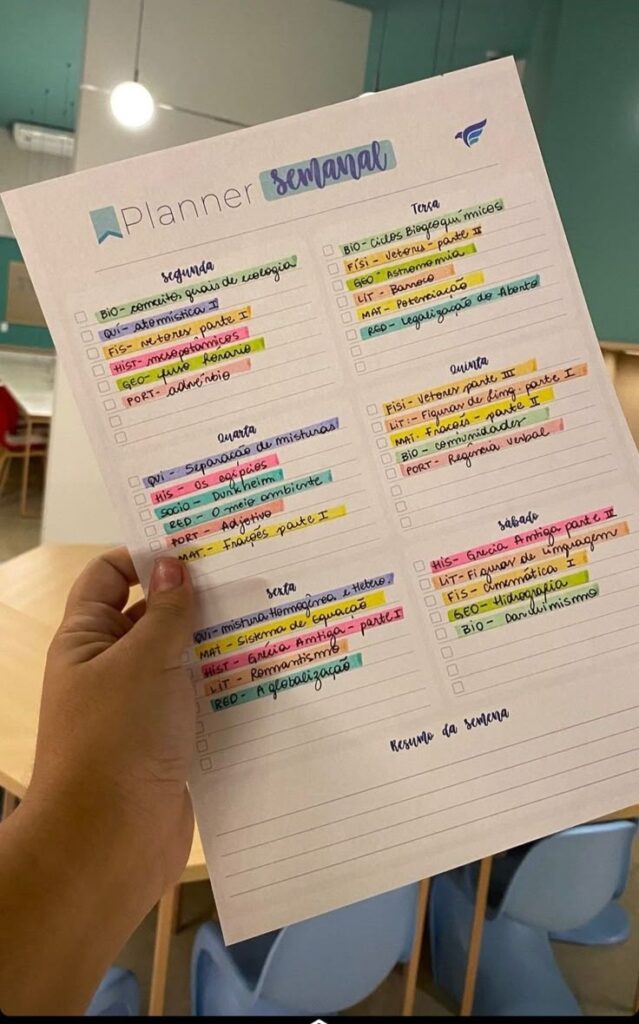 Planner semanal
Segunda
BIO - conceitos gerais de ecologia
QUÍ - atomística I
FÍS - vetores parte I
HIST - mesopotâmicos
GEO - fuso horário
PORT - advérbio
Terça
BIO - Ciclos Biogeoquímicos
FÍSI - Vetores - parte II
GEO - Astronomia
LIT - Barroco
MAT - Potenciação
RED - Legalização do Aborto
Quarta
QUI - Separação de misturas
HIS - Os egípcios
SOCIO - Durkheim
RED - O meio ambiente
PORT - Adjetivo
MAT - Frações parte I
Quinta
FISI - Vetores parte III
LIT:- Figuras de Ling. parte I
MAT. Frações - parte II
BIO - comunidades
PORT - Regência verbal
Sexta
QUI - mistura Homogênea e Hetero.
MAT - Sistema de Equação
HIST - Grécia Antiga - parte I
LIT - Romantismo
RED - A globalização
Sábado
HIS - Grécia Antiga parte II
LIT - Figuras de Linguagem
FIS - cinemática I
GEO - Hidrografia
BIO - Darwinismo
Resumo da semena